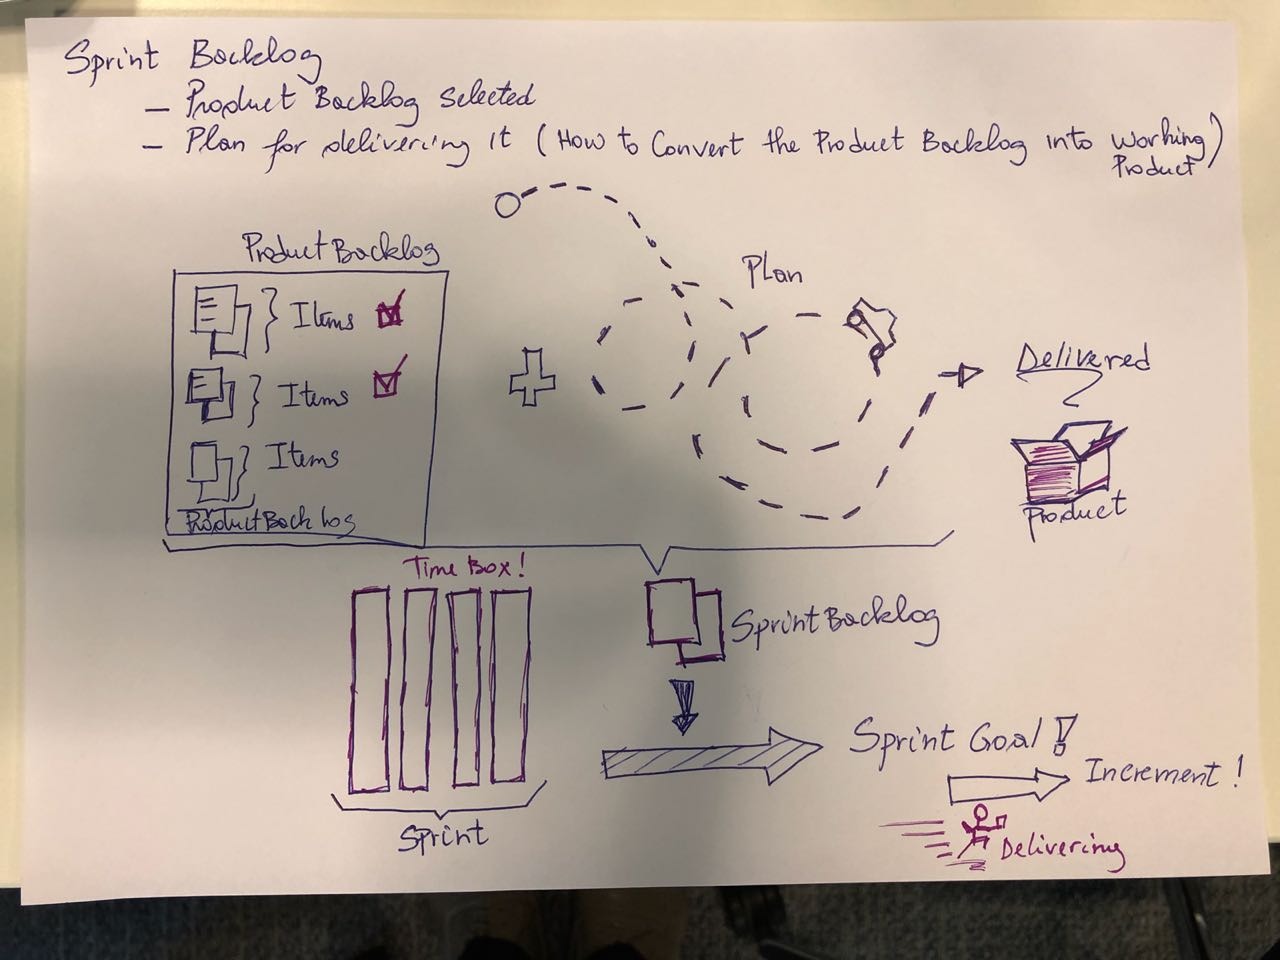 Sprint Backlog
– Product Backlog Selected
– Plan for delivering it (How to Convert the Product Backlog into Working Product)
Product Backlog
Items
Items
Items
Product Backlog
Plan
Delivered
Product
Time Box!
Sprint Backlog
Sprint
Sprint Goal!
Increment!
Delivering